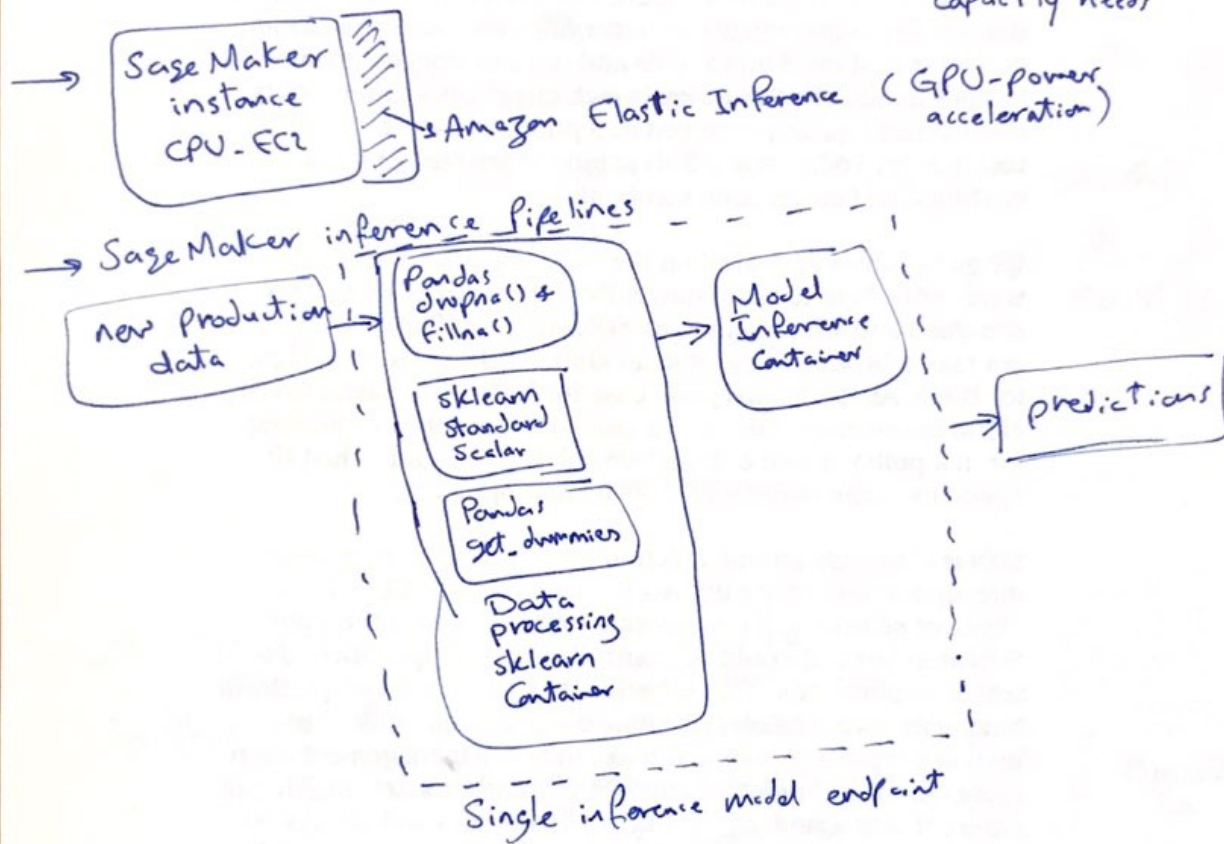 capacity needs
→ Sage Maker
instance
CPU_EC2
→ Amazon Elastic Inference (GPU-power
acceleration)
→ SageMaker inference Pipelines
new production
data
Pandas
dropna() &
fillna()
sklearn
Standard
Scalar
Pandas
get_dummies
Data
processing
sklearn
Container
Model
Inference
Container
predictions
Single inference model endpoint